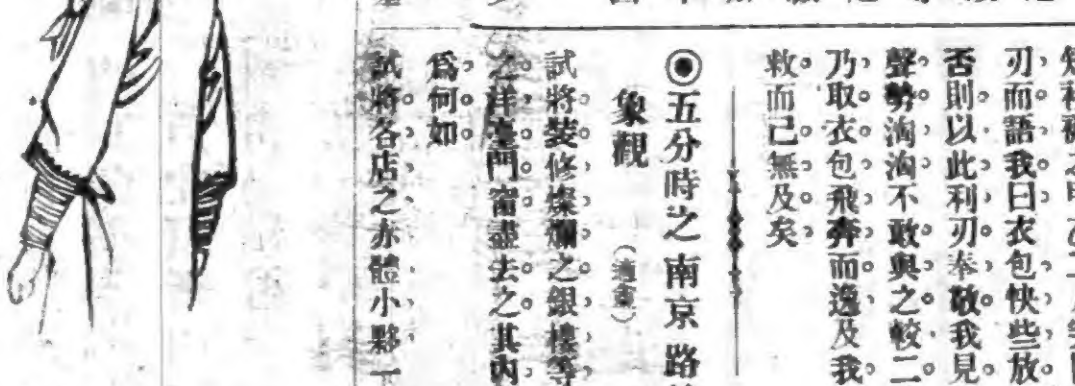 刃而語我曰衣包快些放
否則以此利刃奉敬我見
聲勢洶洶不敢與之較二
乃取衣包飛奔而逸及我
救而已無及矣
◉五分時之南京路
象觀
試將裝修燦爛之銀樓等
之洋臺門窗盡去之其內
爲何如
試將各店之赤體小夥一